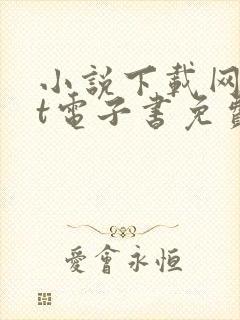 小説下載网
t電子書免費
愛會永恒